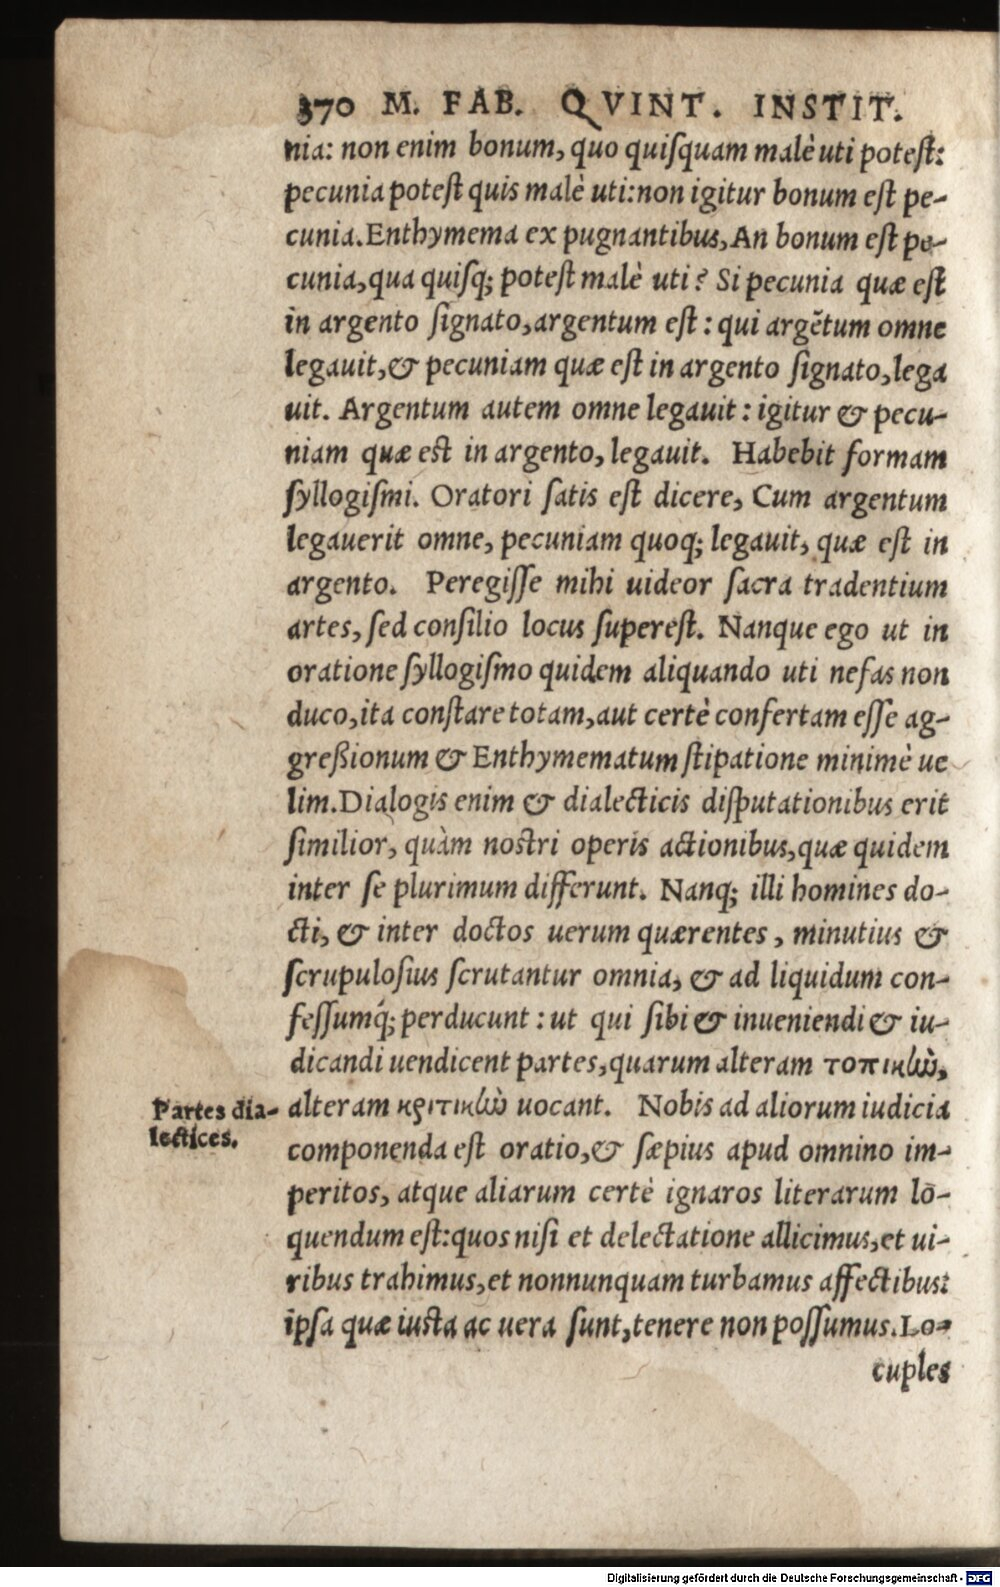 370 M. FAB. QVINT. INSTIT.
nia: non enim bonum, quo quiſquam malè uti poteſt:
pecunia poteſt quis malè uti: non igitur bonum eſt pe-
cunia. Enthymema ex pugnantibus, An bonum eſt pe-
cunia, qua quiſq; poteſt malè uti? Si pecunia quæ eſt
in argento ſignato, argentum eſt: qui argẽtum omne
legauit, & pecuniam quæ eſt in argento ſignato, lega
uit. Argentum autem omne legauit: igitur & pecu-
niam quæ est in argento, legauit. Habebit formam
ſyllogiſmi. Oratori ſatis eſt dicere, Cum argentum
legauerit omne, pecuniam quoq; legauit, quæ eſt in
argento. Peregiſſe mihi uideor ſacra tradentium
artes, ſed conſilio locus ſupereſt. Nanque ego ut in
oratione ſyllogiſmo quidem aliquando uti nefas non
duco, ita conſtare totam, aut certè confertam eſſe ag-
greßionum & Enthymematum ſtipatione minimè ue
lim. Dialogis enim & dialecticis diſputationibus erit
ſimilior, quàm nostri operis actionibus, quæ quidem
inter ſe plurimum differunt. Nanq; illi homines do-
cti, & inter doctos uerum quærentes, minutius &
ſcrupuloſius ſcrutantur omnia, & ad liquidum con-
feſſumq́; perducunt: ut qui ſibi & inueniendi & iu-
dicandi uendicent partes, quarum alteram τοπικὴν,
Partes dia- alteram κριτικὴν uocant. Nobis ad aliorum iudicia
lectices.
componenda eſt oratio, & ſæpius apud omnino im-
peritos, atque aliarum certè ignaros literarum lō-
quendum eſt: quos niſi et delectatione allicimus, et ui-
ribus trahimus, et nonnunquam turbamus affectibus:
ipſa quæ iusta ac uera ſunt, tenere non poſſumus. Lo-
cuples
Digitalisierung gefördert durch die Deutsche Forschungsgemeinschaft - DFG